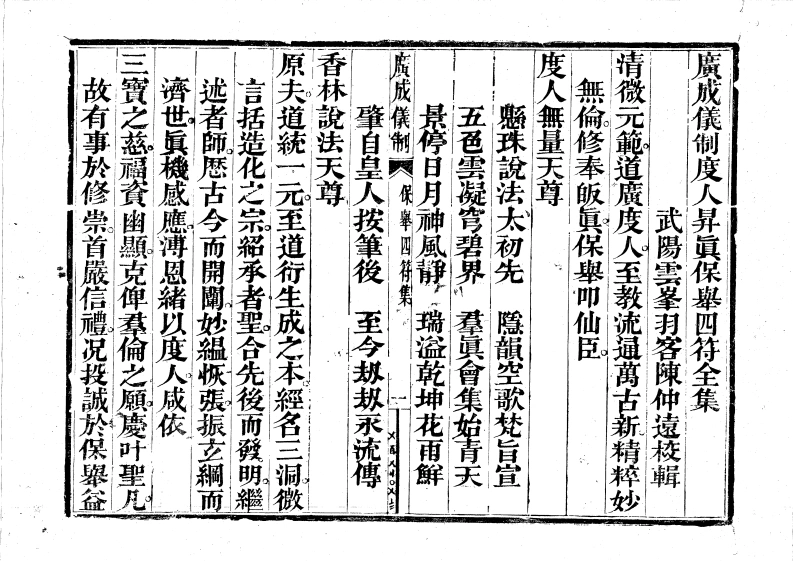 廣成儀制度人昇眞保舉四符全集
武陽雲峯羽客陳仲遠校輯
清微元範道廣度人至教流通萬古新精粹妙
無倫修奉皈眞保舉叩仙臣
度人無量天尊
懸珠說法太初先　隱韻空歌梵旨宣
五色雲凝穹碧界　羣眞會集始青天
景停日月神風靜　瑞溢乾坤花雨鮮
肇自皇人按筆後　至今刼刼永流傳
廣成儀制　保舉四符集　一
香林說法天尊
原夫道統一元至道衍生成之本經名三洞微
言括造化之宗紹承者聖合先後而發明繼
述者師歷古今而開闡妙緼恢張振玄綱而
濟世眞機感應溥恩緒以度人咸依
三寶之慈福資幽顯克俾羣倫之願慶叶聖凡
故有事於修崇首嚴信禮况投誠於保舉益